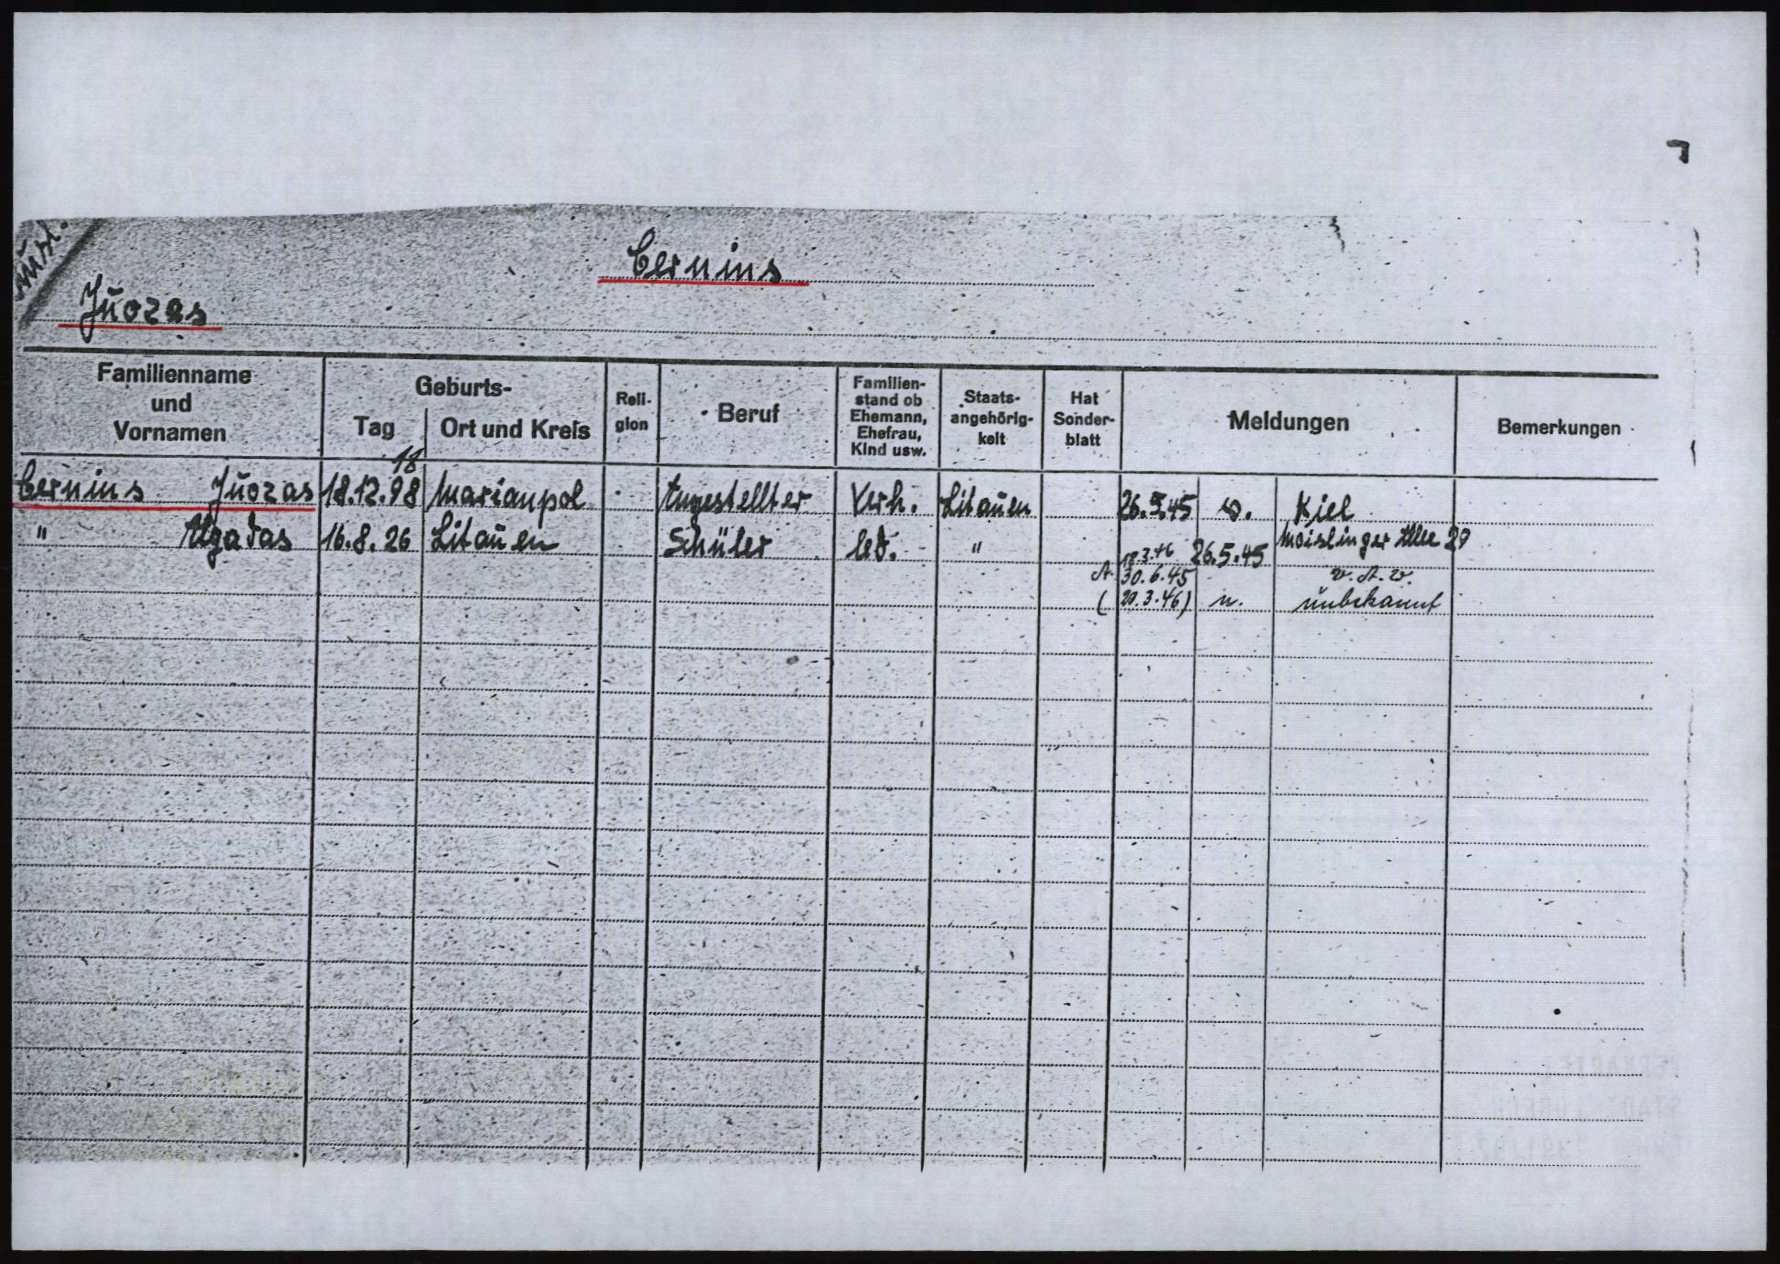 Ausl.
Cernins
Juozas
Familienname und Vornamen
Geburts-
Tag
Ort und Kreis
Reli-gion
Beruf
Familien-stand ob Ehemann, Ehefrau, Kind usw.
Staats-angehörig-keit
Hat Sonder-blatt
Meldungen
Bemerkungen
18
Cernins Juozas 18.12.98 Marianpol Angestellter Verh. Litauen 26.5.45 v. Kiel
" 16.8.26 Litauen Schüler led. " 26.5.45 Moislinger Allee 29
18.3.46
A 30.6.45 v. A. w.
(20.3.46) n. unbekannt